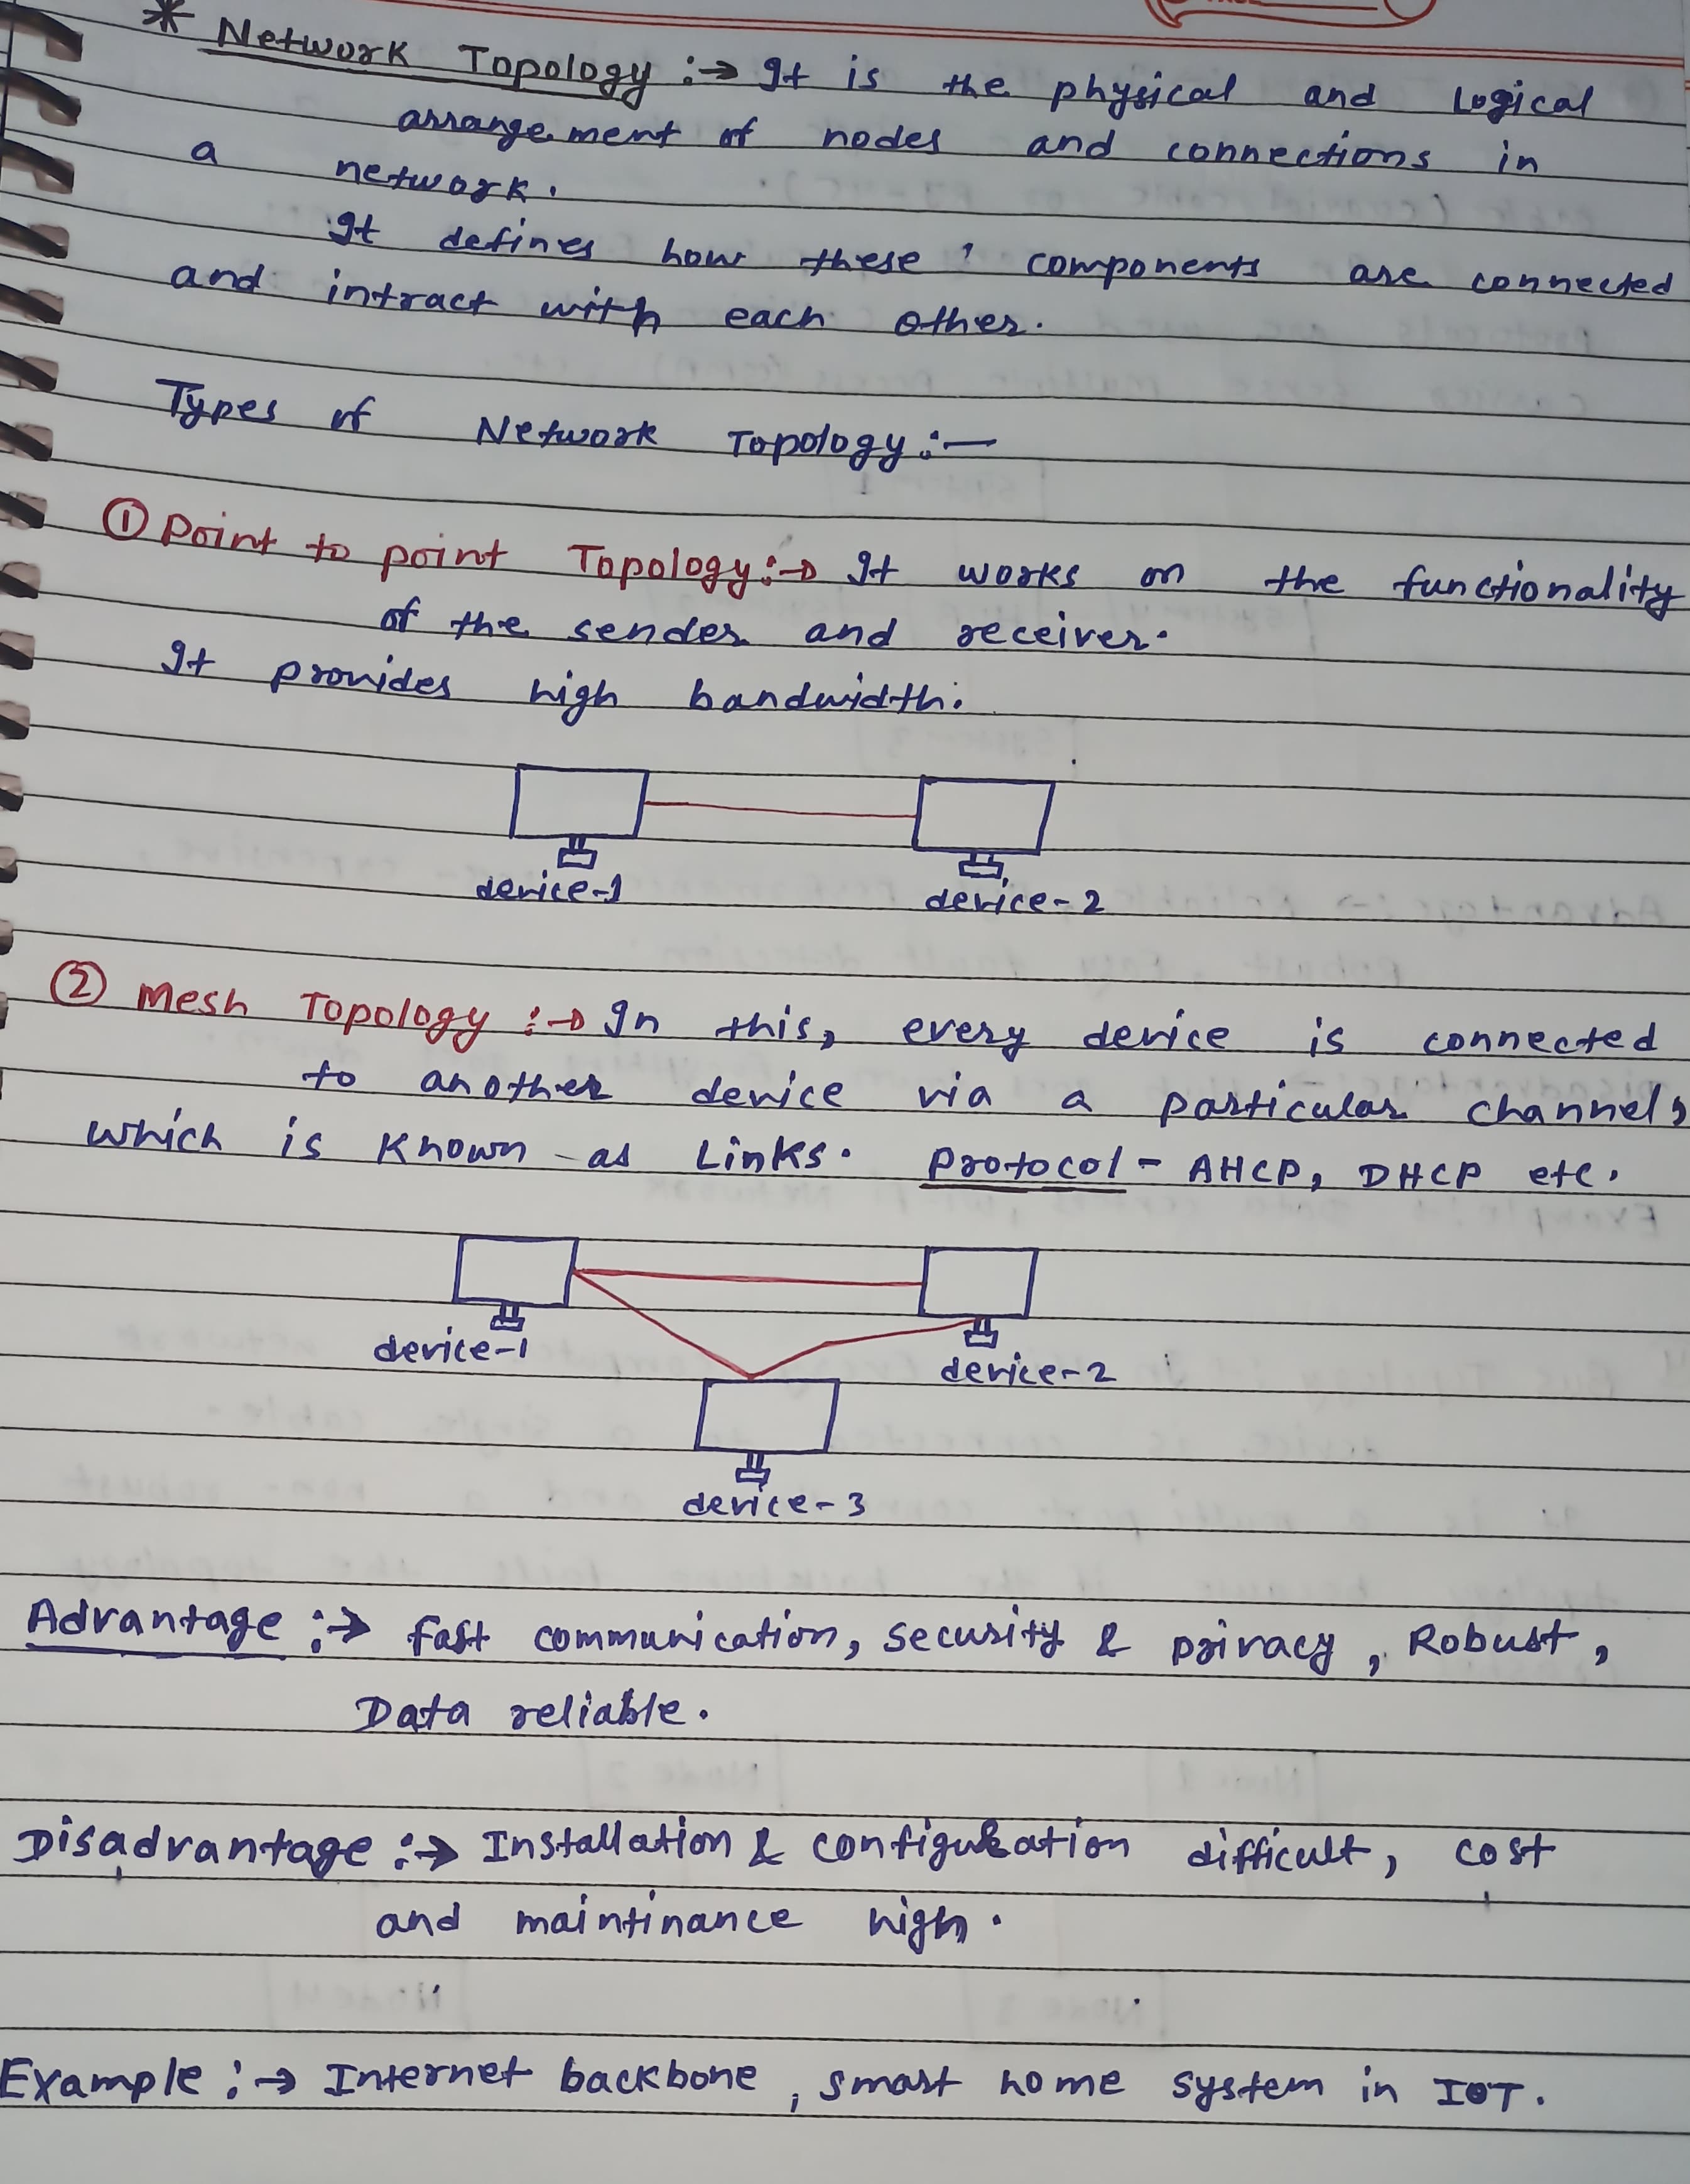 * Network Topology :→ It is the physical and Logical
arrangement of nodes and connections in
a network.
It defines how these components are connected
and intract with each other.
Types of Network Topology :—
① Point to point Topology :→ It works on the functionality
of the sender and receiver.
It provides high bandwidth.
device-1 device-2
② Mesh Topology :→ In this, every device is connected
to another device via a particular channel,
which is known as Links. Protocol - AHCP, DHCP etc.
device-1 device-2
device-3
Advantage :→ fast communication, security & privacy, Robust,
Data reliable.
Disadvantage :→ Installation & configuration difficult, cost
and maintinance high.
Example :→ Internet backbone, smart home system in IOT.